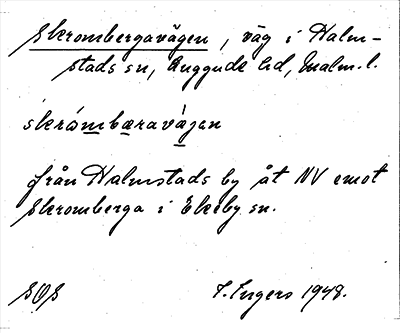 Skrombergavägen, väg i Halm-
stads sn, Luggude hd, Malm. l.
skråmbæravägen
från Halmstads by åt NV emot
Skromberga i Ekeby sn.
SOS I. Ingers 1948.